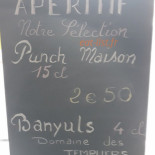 APERITIF
Notre Sélection
Punch Maison
15 cl
2€50
Banyuls 4 cl
Domaine des
TEMPLIERS